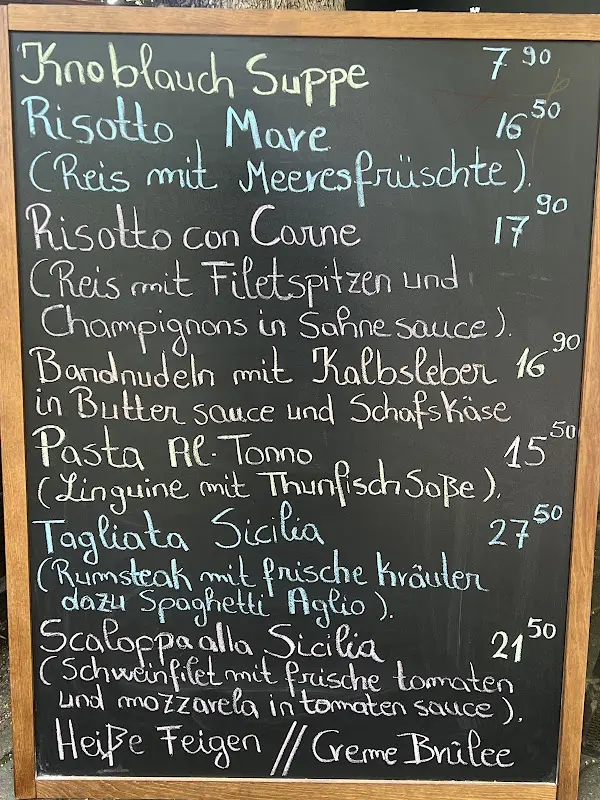 Knoblauch Suppe 7 90
Risotto Mare 16 50
(Reis mit Meeresfrüschte).
Risotto con Carne 17 90
(Reis mit Filetspitzen und
Champignons in Sahne sauce).
Bandnudeln mit Kalbsleber 16 90
in Butter sauce und Schafskäse
Pasta Al. Tonno 15 50
(Linguine mit Thunfisch Soße).
Tagliata Sicilia 27 50
(Rumsteak mit frische Kräuter
dazu Spaghetti Aglio).
Scaloppa alla Sicilia 21 50
(Schweinfilet mit frische tomaten
und mozzarela in tomaten sauce).
Heiße Feigen // Creme Brûlee